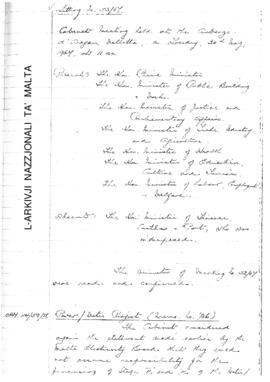 Sitting No. 23/67
Cabinet Meeting held at the Auberge
d'Aragon, Valletta, on Tuesday, 30th May,
1967, at 11 am
Present: The Hon. Prime Minister
The Hon. Minister of Public Building
and Works
The Hon. Minister of Justice and
Parliamentary Affairs
The Hon. Minister of Trade, Industry
and Agriculture
The Hon. Minister of Health
The Hon. Minister of Education,
Culture and Tourism
The Hon. Minister of Labour, Employment
and Welfare
Absent: The Hon. Minister of Finance
Customs and Port, who was
indisposed.
The Minutes of Meeting No.
were read and confirmed.
Power/Water Project (Memo. No.
The Cabinet considered
again the statement made earlier by the
Malta Electricity Board that they could
not assume responsibility for the
financing of Stage of the Water/
L-ARKIVJI NAZZJONALI TA' MALTA